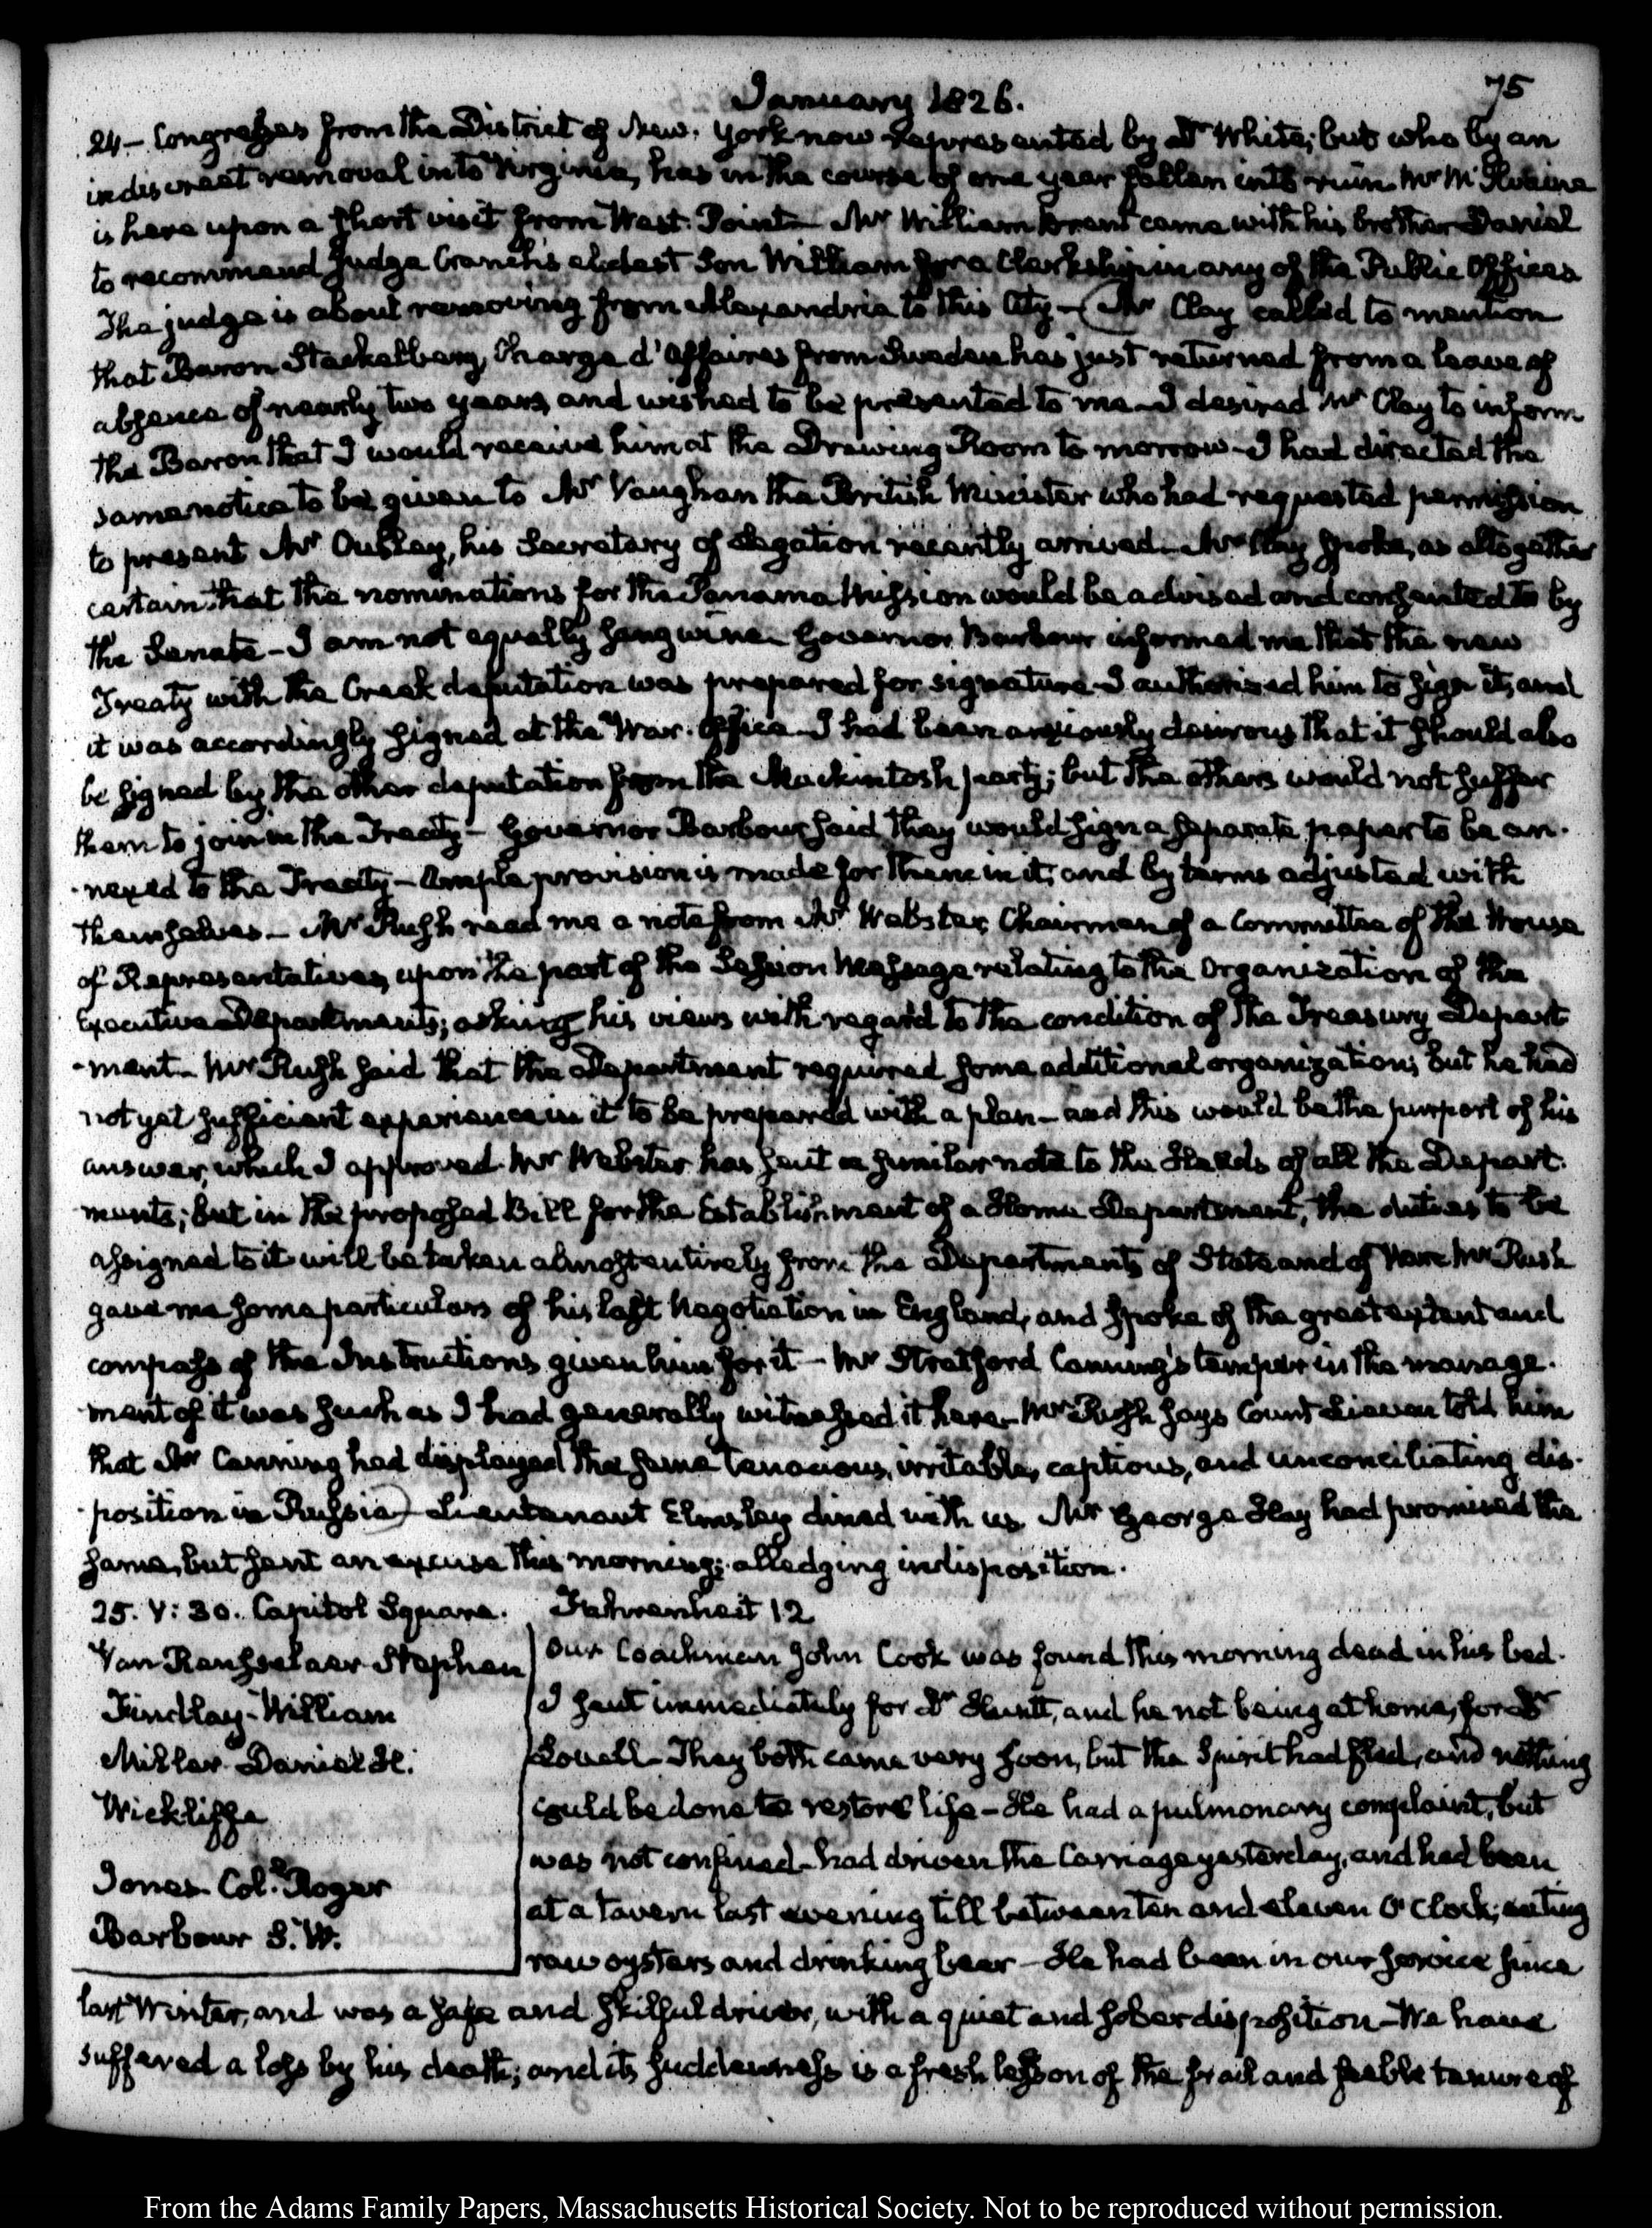 January 1826.
75
24 — Congresses from the District of New-York now represented by Mr White; but who by an
indiscreet removal into Virginia, has in the course of one year fallen into ruin. Mr McIlvaine
is here upon a short visit from West-Point — Mr William Brent came with his brother Daniel
to recommend Judge Cranch's eldest Son William for a Clerkship in any of the Public Offices
The judge is about removing from Alexandria to this City — (Mr Clay called to mention
that Baron Stackelberg, Chargé d'Affaires from Sweden has just returned from a leave of
absence of nearly two years, and wished to be presented to me — I desired Mr Clay to inform
the Baron that I would receive him at the Drawing Room to morrow — I had directed the
same notice to be given to Mr Vaughan the British Minister who had requested permission
to present Mr Ouseley, his Secretary of Legation recently arrived — Mr Clay spoke, as altogether
certain that the nominations for the Panama Mission would be advised and consented to by
the Senate — I am not equally sanguine — Governor Barbour informed me that the new
Treaty with the Creek deputation was prepared for signature — I authorised him to sign it, and
it was accordingly signed at the War-Office — I had been anxiously desirous that it should also
be signed by the other deputation from the Mackintosh party; but the others would not suffer
them to join in the Treaty — Governor Barbour said they would sign a separate paper to be an-
-nexed to the Treaty — Ample provision is made for them in it, and by terms adjusted with
themselves — Mr Rush read me a note from Mr Webster, Chairman of a Committee of the House
of Representatives, upon the part of the Session Message relating to the Organization of the
Executive Departments; asking his views with regard to the condition of the Treasury Depart
-ment — Mr Rush said that the Department required some additional organization; but he had
not yet sufficient experience in it to be prepared with a plan — and this would be the purport of his
answer, which I approved. Mr Webster has sent a similar note to the Heads of all the Depart-
-ments; but in the proposed Bill for the Establishment of a Home Department, the duties to be
assigned to it will be taken almost entirely from the Departments of State and of War. Mr Rush
gave me some particulars of his last Negotiation in England, and spoke of the great extent and
compass of the Instructions given him for it — Mr Stratford Canning's temper in the manage-
-ment of it was such as I had generally witnessed it here — Mr Rush says Count Lieven told him
that Mr Canning had displayed the same tenacious, irritable, captious, and unconciliating dis-
-position in Russia) — Lieutenant Elmsley dined with us Mr George Hay had promised the
same, but sent an excuse this morning; alledging indisposition.
25. V: 30. Capitol Square. Fahrenheit 12
Van Rensselaer Stephen
Findlay — William
Miller — Daniel H.
Wickliffe
Jones — Col. Roger
Barbour S. W.
Our Coachman John Cook was found this morning dead in his bed.
I sent immediately for Dr Huntt, and he not being at home, for Dr
Lovell — They both came very soon, but the Spirit had fled, and nothing
could be done to restore life — He had a pulmonary complaint, but
was not confined — had driven the Carriage yesterday, and had been
at a tavern last evening till between ten and eleven O'Clock; eating
raw oysters and drinking beer — He had been in our service since
last Winter, and was a safe and skilful driver, with a quiet and sober disposition — We have
suffered a loss by his death; and its suddenness is a fresh lesson of the frail and feeble tenure of
From the Adams Family Papers, Massachusetts Historical Society. Not to be reproduced without permission.